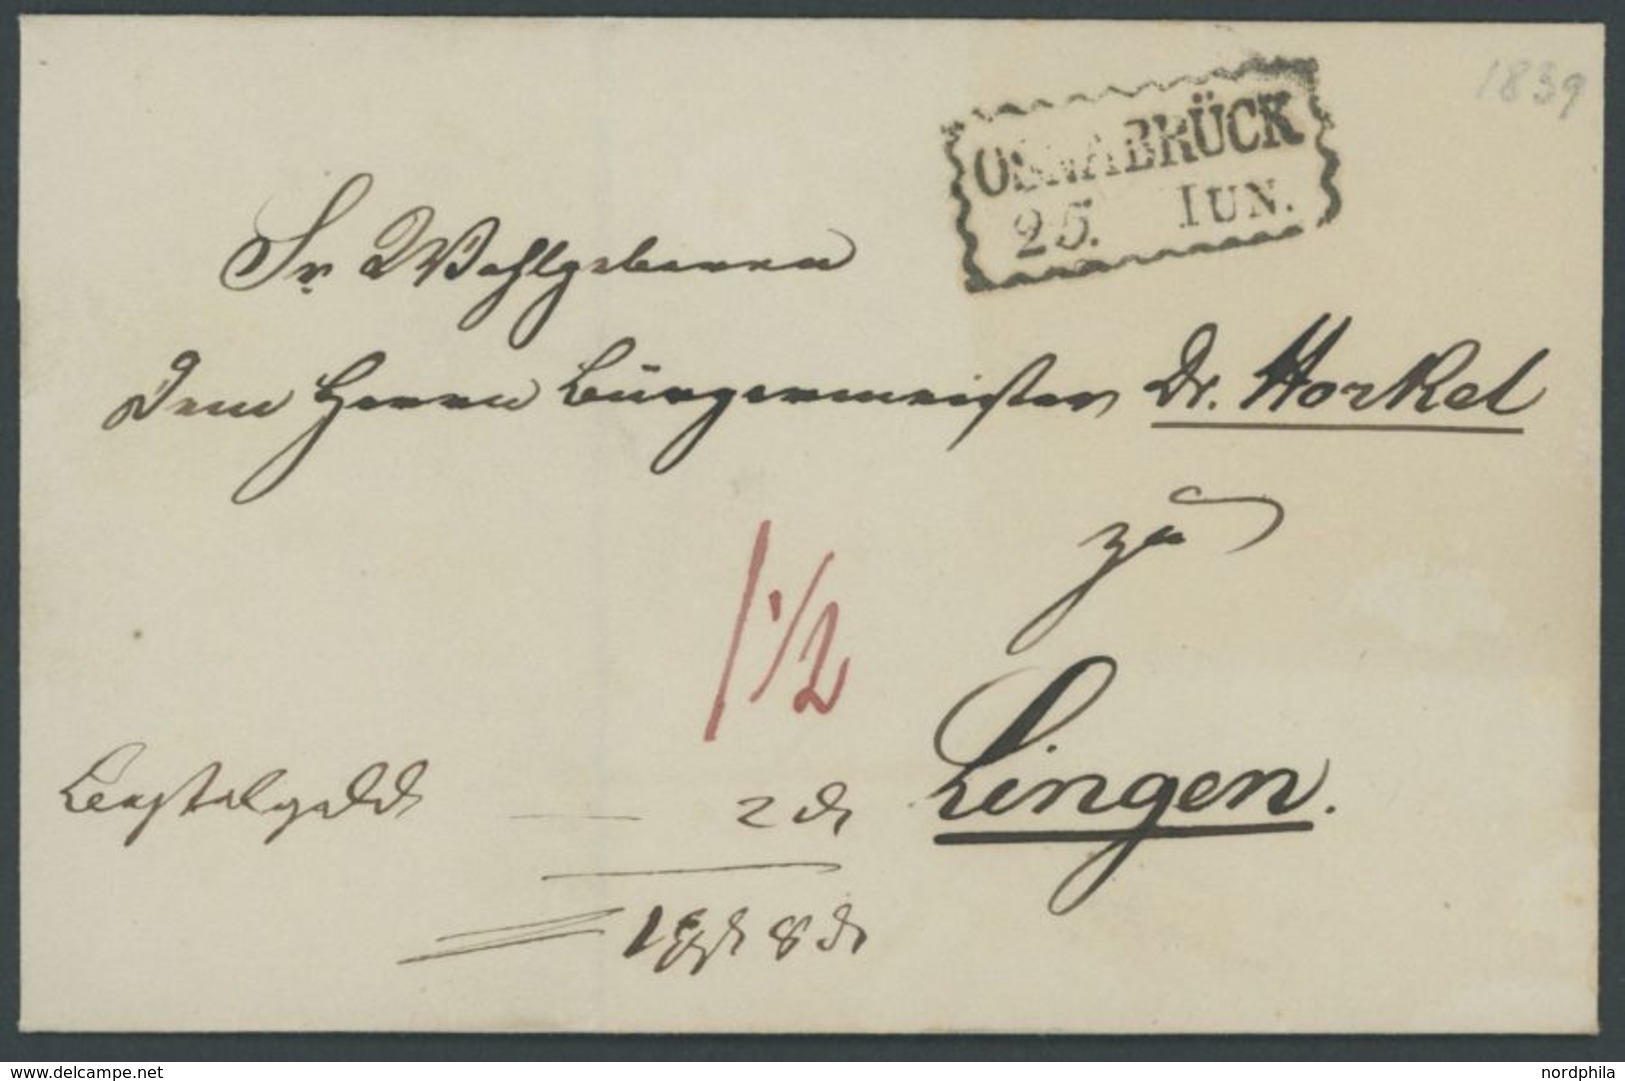 1839
OSNABRÜCK
25. IUN.
Sr Wohlgeboren
Dem Herrn Bürgermeister Dr. Horkel
zu
1 1/2
Lingen.
Bestellgeld — 2 d
1 8 d
www.delcampe.net
nordphila